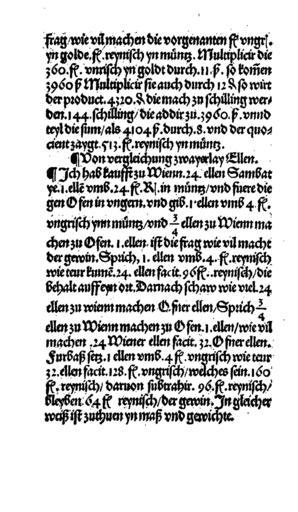 frag/wie vil machen die vorgenanten fl vngr.
yn golde.fl.reynisch yn müntz. Multiplicir die
360.fl. vnrisch yn goldt durch.11.ß. so komen
3960 ß Multiplicir sie auch durch 12 ₰ so wirt
der product.4320.₰ die mach zu schilling wer-
den.144.schilling/die addir zu.3960.ß.vnnd
teyl die sum/als 4104 ß.durch.8.vnd der quo-
cient zaygt.513.fl.reynisch yn müntz.
¶Von vergleichung zwayerlay Ellen.
¶Ich hab kaufft zu Wienn.24 ellen Sambat
ye.1.elle vmb.24.fl.R.in müntz/vnd fuere die
gen Ofen in vngern.vnd gib.1.ellen vmb 4.fl.
vngrisch ynn müntz/vnd 3/4 ellen zu Wienn ma
chen zu Ofen.1.ellen.ist die frag wie vil macht
der gewin.Sprich, 1. ellen vmb.4.fl.reynisch
wie teur kumen.24.ellen facit.96fl.reynisch/die
behalt auff eyn ort.Darnach schaw wie viel.24
ellen zu wienn machen Ofner ellen/Sprich 3/4
ellen zu Wienn machen zu Ofen.1.ellen/wie vil
machen .24 Wiener ellen facit.32.Ofner ellen.
Furbaß setz.1 ellen vmb.4 fl. vngrisch wie teur
32.ellen facit.128.fl.vngrisch/welches sein.160
fl.reynisch/daruon subtrahir. 96.fl.reynisch/
bleyben 64 fl reynisch/der gewin.In gleicher
weiß ist zuthuen yn maß vnd gewichte.